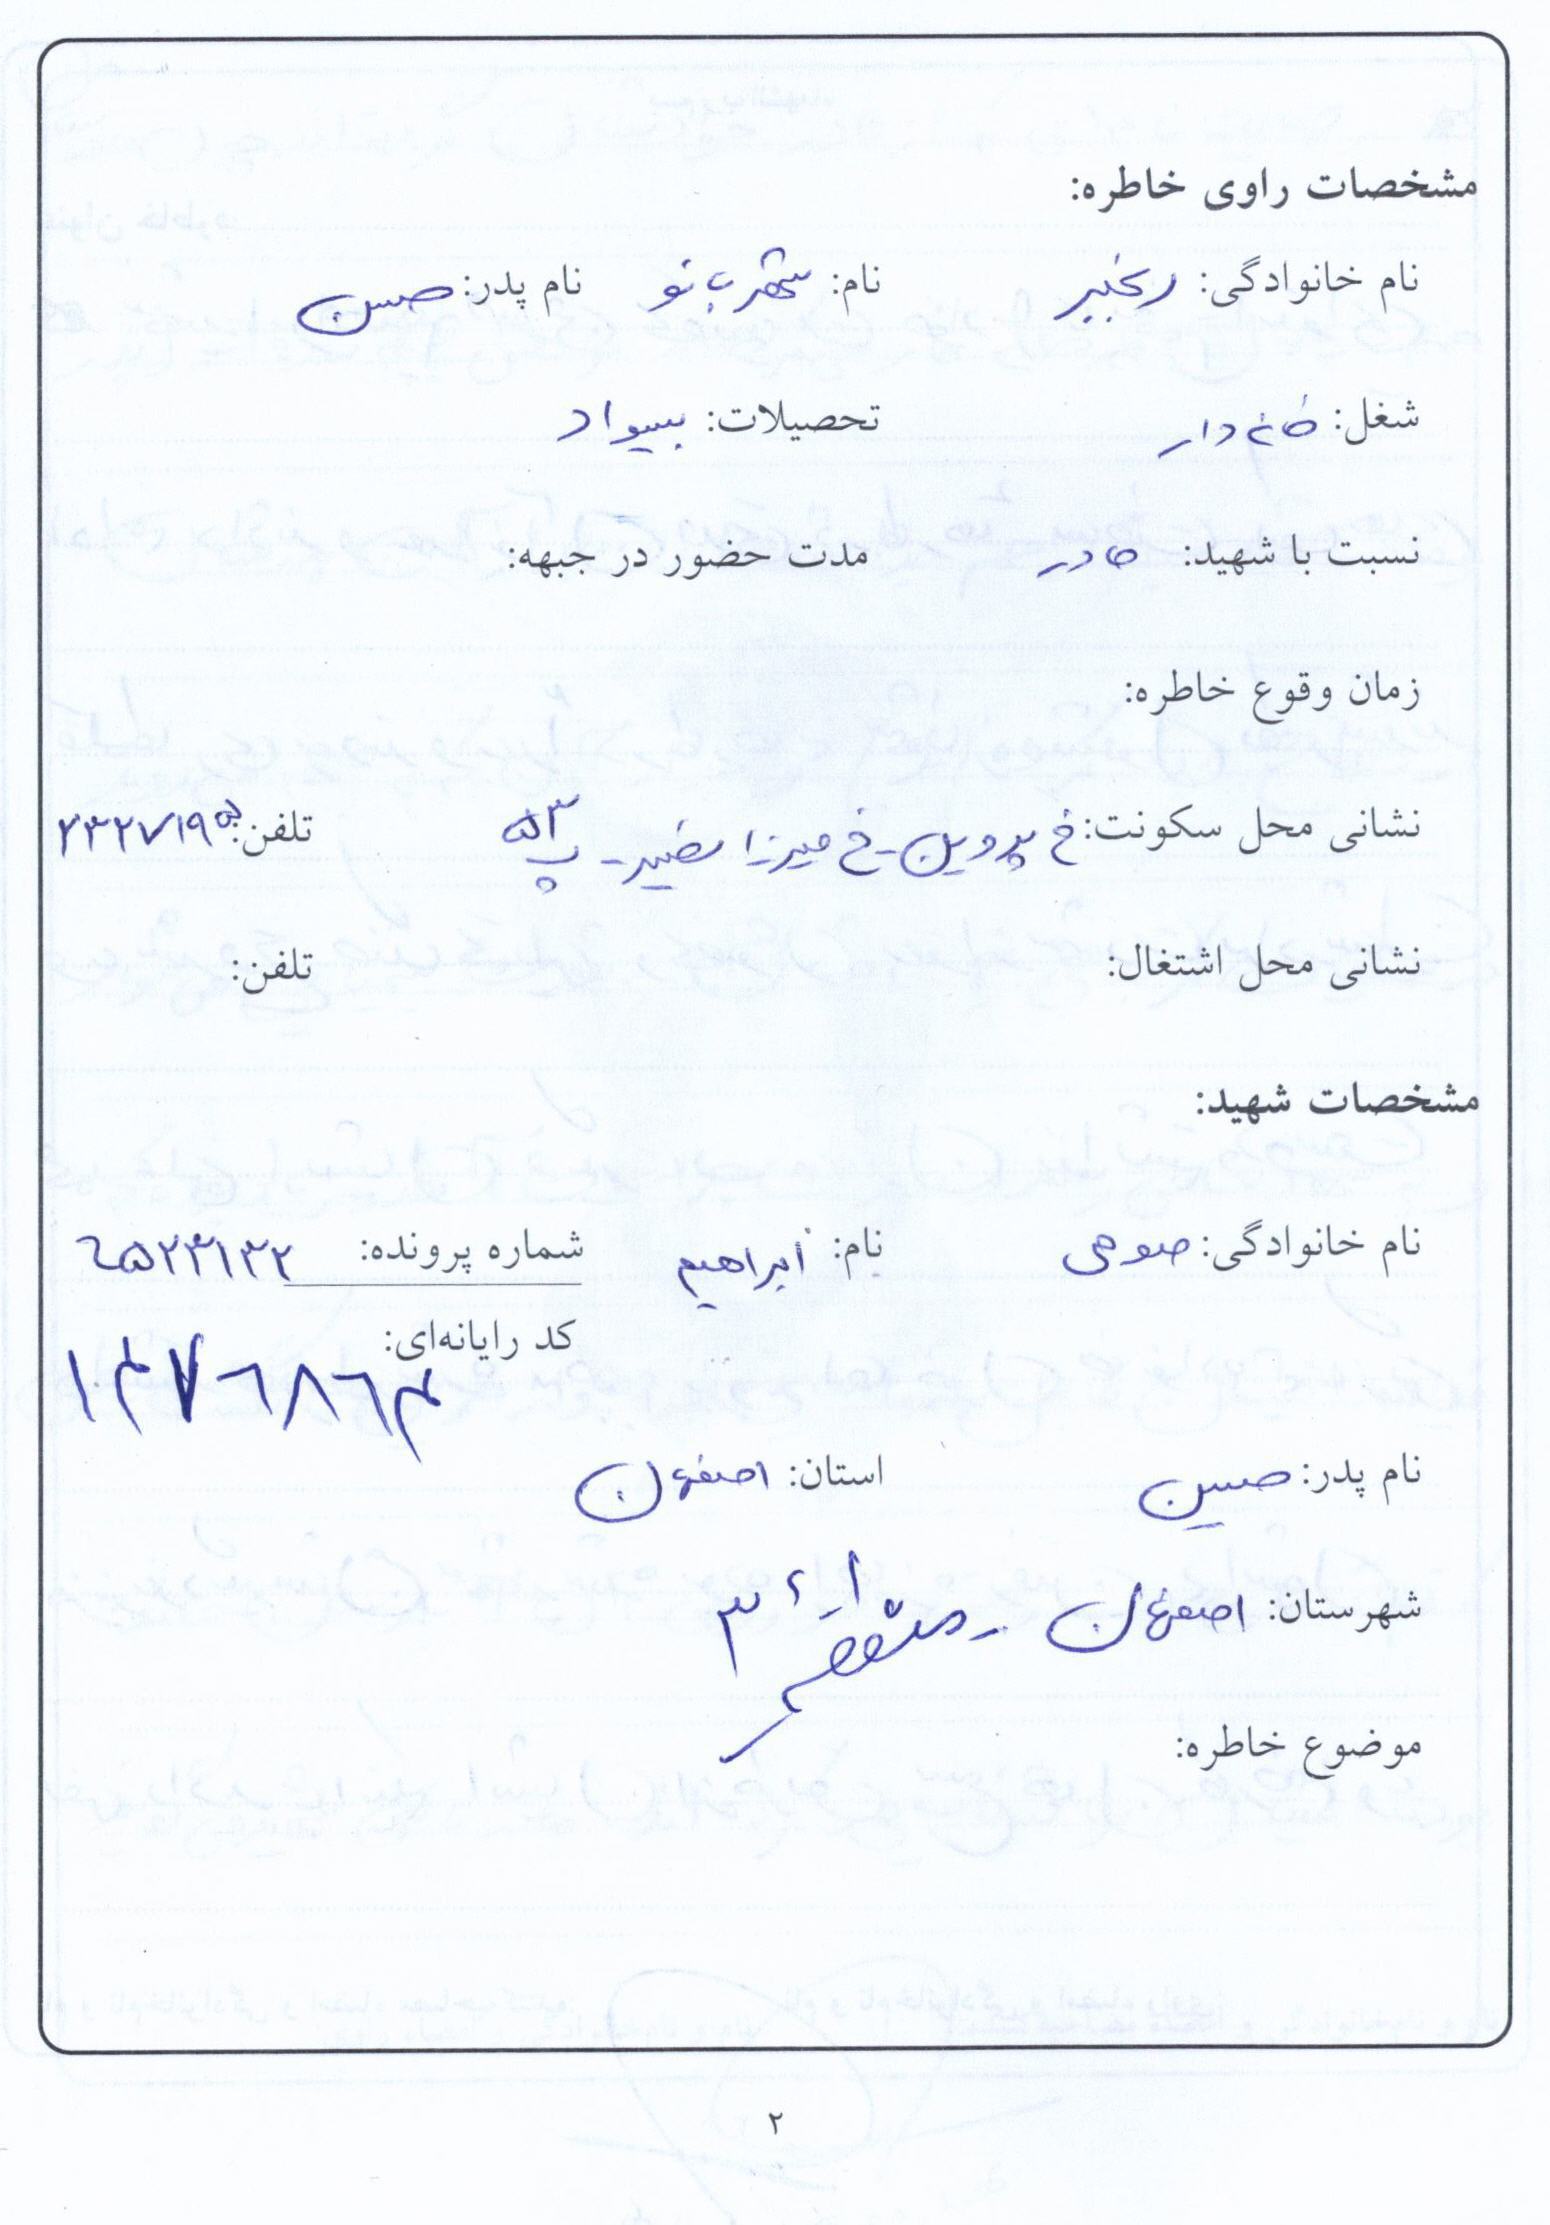 مشخصات راوی خاطره:
نام خانوادگی: رنجبر نام: شهربانو نام پدر: حسن
شغل: خانه دار تحصیلات: بیسواد
نسبت با شهید: مادر مدت حضور در جبهه:
زمان وقوع خاطره:
نشانی محل سکونت: خ پروین - خ میرزا نصیر - پ ۵۳ تلفن: ۲۳۲۷۱۹۵
نشانی محل اشتغال: تلفن:
مشخصات شهید:
نام خانوادگی: صلوحی نام: ابراهیم شماره پرونده: ۶۵۲۳۱۳۲
کد رایانه‌ای:
۱۴۷۶۸۶۴
نام پدر: حسین استان: اصفهان
شهرستان: اصفهان - منطقه ۳
موضوع خاطره:
۲